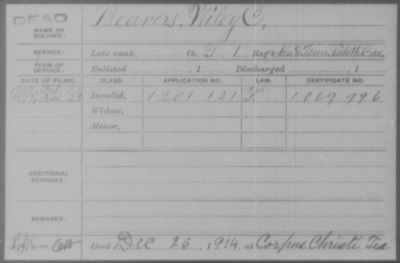 DEAD
NAME OF SOLDIER:
Beavers, Wiley C.
SERVICE:
Late rank, Co. G, 1 Reg't Ala & Tenn. Cav.
TERM OF SERVICE:
Enlisted , 1 Discharged , 1
DATE OF FILING. CLASS. APPLICATION NO. LAW. CERTIFICATE NO.
Invalid, 1201 121 1069 996
Widow,
Minor,
ADDITIONAL SERVICES:
REMARKS:
Died Dec 26, 1914, at Corpus Christi Tex